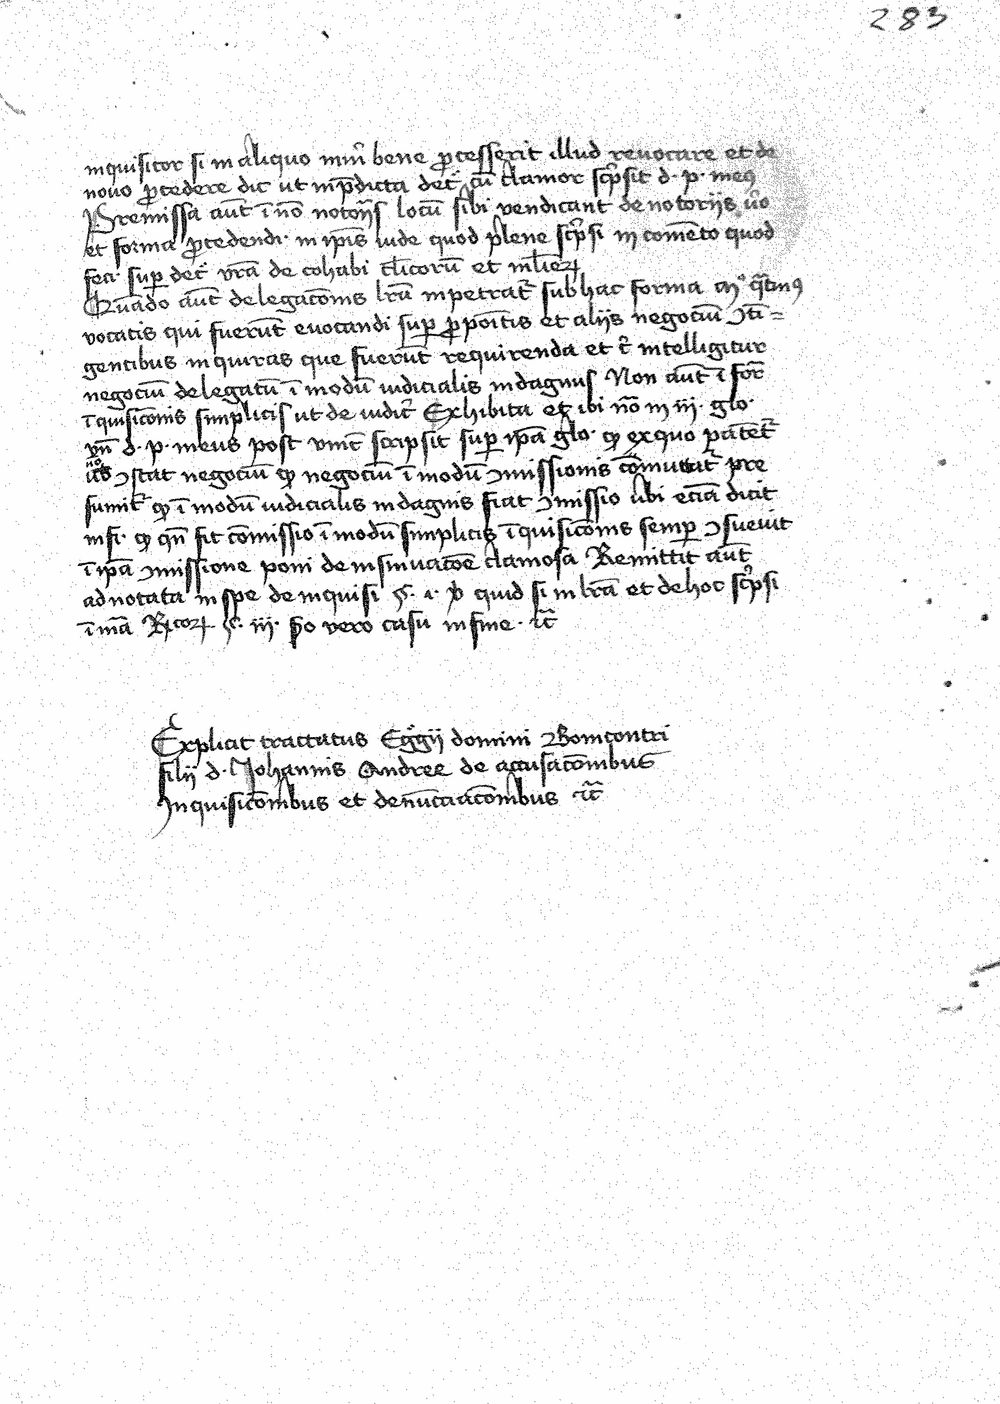 283
inquisitor si in aliquo min̄ bene ꝓcesserit illud reuocare et de
nouo ꝓcedere dic ut in p̄dicta dec̄ cū clamor sc̄psit d. p. meꝰ
Premissa aūt ī nō notoriis locū sibi vendicant de notoriis ūo
et forma ꝓcedendi. in ip̄is vide quod plene sc̄psi in comēto quod
feci. suꝑ dec̄ vr̄a de cohabi cl̄icorū et ml̄ieꝝ
Quādo aūt delegacōnis lr̄a inpetrat̄ sub hac forma qᷓtinꝰ
vocatis qui fuerūt euocandi suꝑ ꝓpoītis et aliis negociū ꝯti=
gentibus inquiras que fuerūt requirenda et c̄ intelligitur
negociū delegatū ī modū iudicialis indaginis Non aūt ī for̄
īquisicōnis simplicis ut de iudic̄ Exhibita et ibi nō in iij. glo.
vn̄ d. p. meus post vinc̄ scripsit suꝑ ip̄a glo. ꝙ ex quo patet̄
nō ꝯstat negociū ꝙ negociū ī modū ꝯmissionis cōmittat̄ pre
sumit̄ ꝙ ī modū iudicialis indaginis fiat ꝯmissio ubi eciā dicit
infi. ꝙ qn̄ fit cōmissio ī modū simplicis īquisicōnis semꝑ ꝯsueuit
ī ip̄a ꝯmissione poni de insinuacōe clamosa Remittit aūt
ad notata in spe de inquisi §. i. ꝟ quid si in lr̄a et de hoc sc̄psi
ī mā §. iij. vero casu in fine. ⁊c̄
Explicit tractatus Egigij domini Bonicontri
filij d. Johannis Andree de accusacōnibus
Inquisicōnibus et denūctiacōnibus ⁊c̄